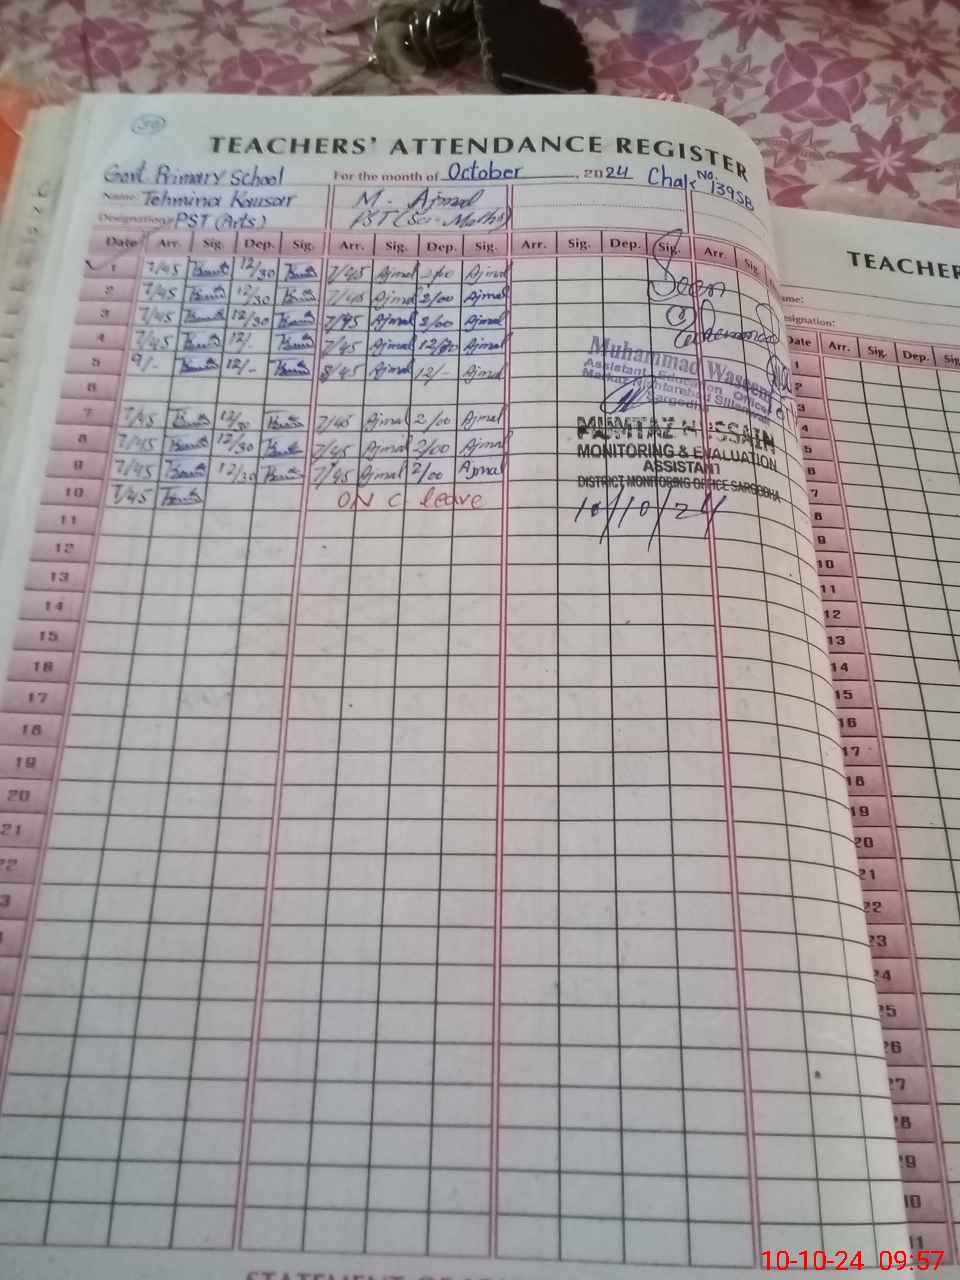 30
TEACHERS' ATTENDANCE REGISTER
Govt. Primary School For the month of October, 2024 Chak No. 139SB
Name: Tehmina Kausar M. Ajmal
Designation: PST (Arts) PST (Sci-Math)
Date Arr. Sig. Dep. Sig. Arr. Sig. Dep. Sig. Arr. Sig. Dep. Sig. Arr. Sig.
1 7/45 12/30 7/45 Ajmal 2/00 Ajmal
2 7/45 12/30 7/45 Ajmal 2/00 Ajmal
3 7/45 12/30 7/45 Ajmal 2/00 Ajmal
4 7/45 12/- 7/45 Ajmal 12/00 Ajmal
5 9/- 12/- 8/45 Ajmal 12/- Ajmal
6
7 7/45 12/30 7/45 Ajmal 2/00 Ajmal
8 7/45 12/30 7/45 Ajmal 2/00 Ajmal
9 7/45 12/30 7/45 Ajmal 2/00 Ajmal
10 7/45 ON C leave
11
12
13
14
15
16
17
18
19
20
21
22
3
Seen
Muhammad Waseem
Assistant Education Officer
Markaz
Sargodha
MUMTAZ HUSSAIN
MONITORING & EVALUATION
ASSISTANT
DISTRICT MONITORING OFFICE SARGODHA
10/10/24
TEACHER
ame:
esignation:
Date Arr. Sig. Dep. S
1
2
3
4
5
6
7
8
9
10
11
12
13
14
15
16
17
18
19
20
21
22
23
24
25
26
27
28
29
30
31
10-10-24 09:57